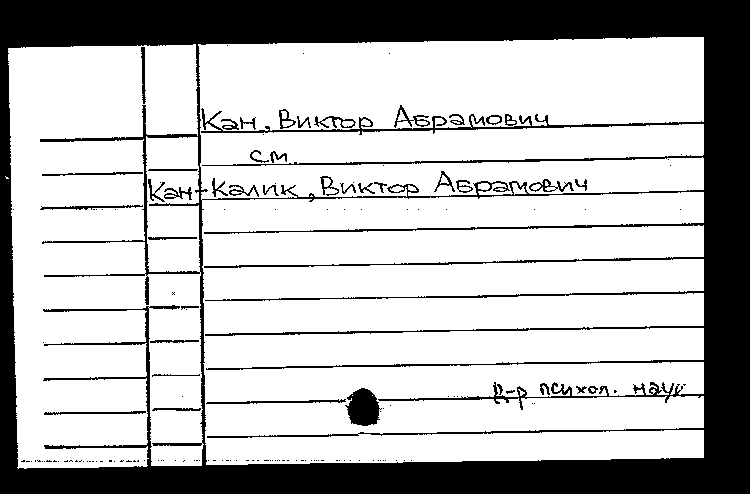 Кан, Виктор Абрамович
см.
Кан-Калик, Виктор Абрамович
д-р психол. наук